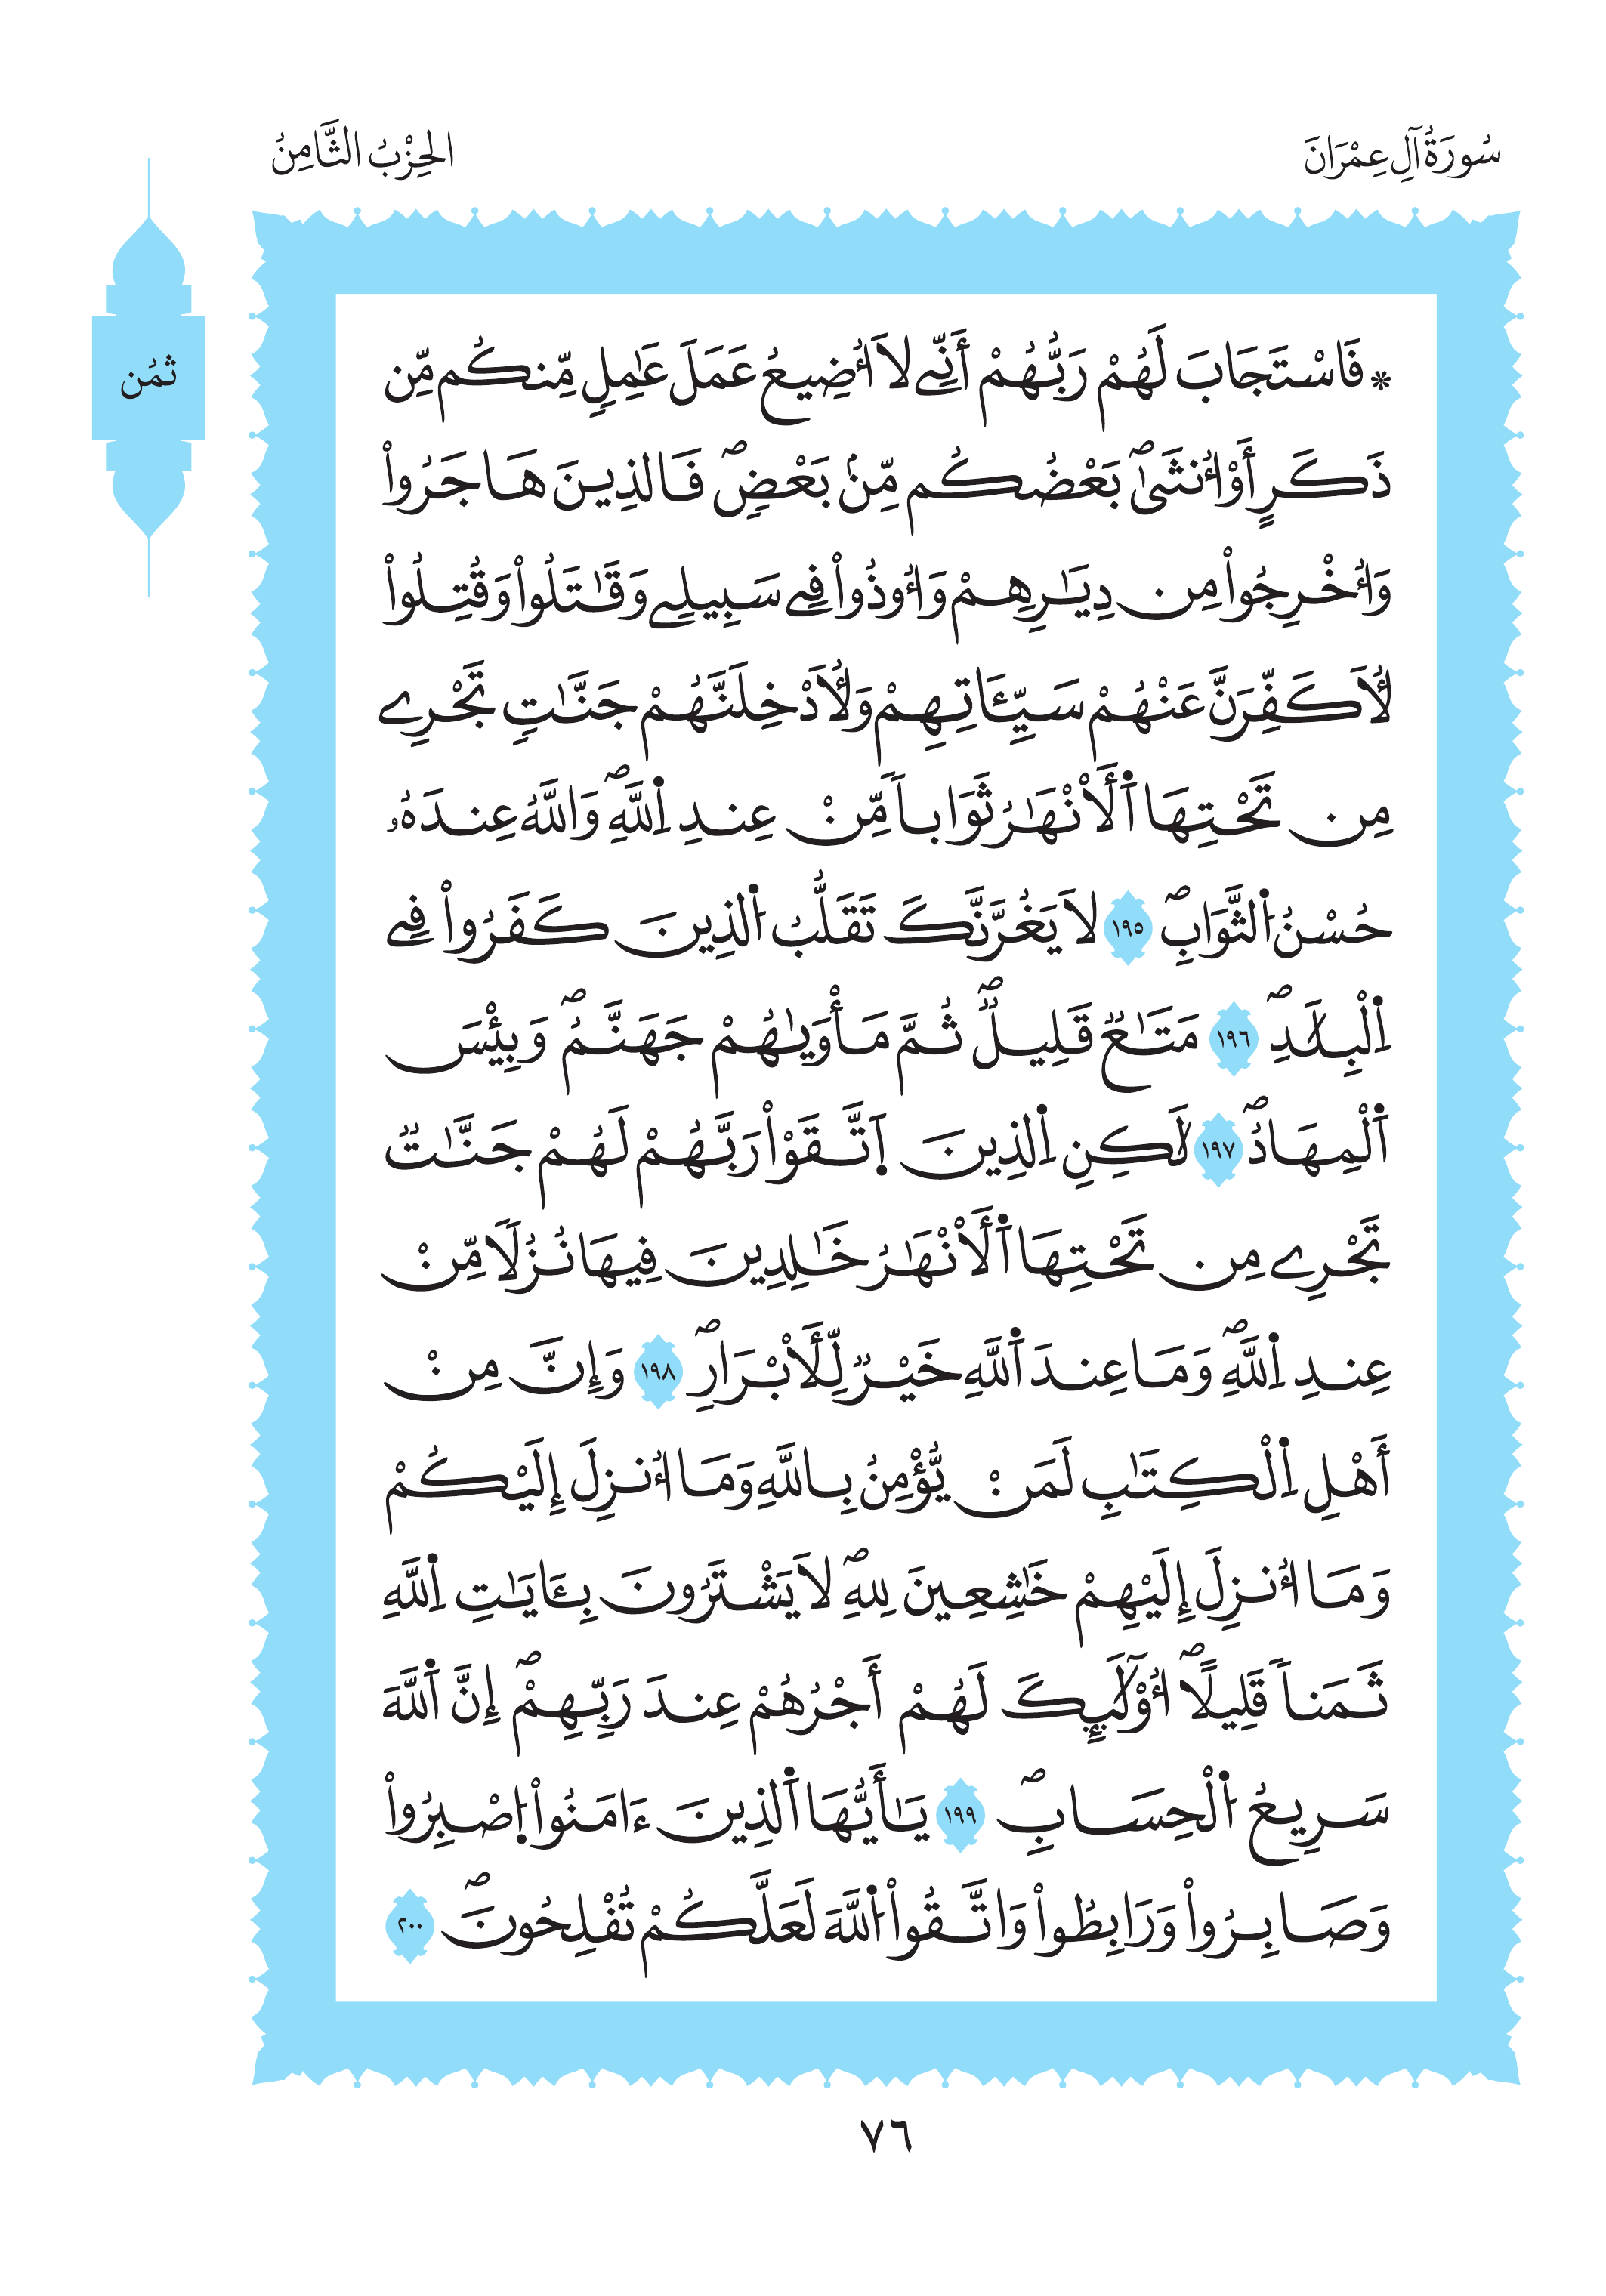 سُورَةُ آلِ عِمْرَانَ
الحِزْبُ الثَّامِنُ
ثُمُن
* فَاسْتَجَابَ لَهُمْ رَبُّهُمْ أَنِّے لَا أُضِيعُ عَمَلَ عَٰمِلٖ مِّنكُم مِّن
ذَكَرٍ أَوُ ا۟نثَىٰۖ بَعْضُكُم مِّنۢ بَعْضٖۖ فَالذِينَ هَاجَرُواْ
وَأُخْرِجُواْ مِن دِيَٰرِهِمْ وَأُوذُواْ فِے سَبِيلِے وَقَٰتَلُواْ وَقُتِلُواْ
لَأُكَفِّرَنَّ عَنْهُمْ سَيِّـَٔاتِهِمْ وَلَأُدْخِلَنَّهُمْ جَنَّٰتٖ تَجْرِے
مِن تَحْتِهَا اَ۬لَانْهَٰرُ ثَوَاباٗ مِّنْ عِندِ اِ۬للَّهِۖ وَاللَّهُ عِندَهُۥ
حُسْنُ اُ۬لثَّوَابِۖ ١٩٥ لَا يَغُرَّنَّكَ تَقَلُّبُ اُ۬لذِينَ كَفَرُواْ فِے
اِ۬لْبِلَٰدِۖ ١٩٦ مَتَٰعٞ قَلِيلٞۖ ثُمَّ مَأْوَيٰهُمْ جَهَنَّمُۖ وَبِئْسَ
اَ۬لْمِهَادُۖ ١٩٧ لَٰكِنِ اِ۬لذِينَ اَ۪تَّقَوْاْ رَبَّهُمْ لَهُمْ جَنَّٰتٞ
تَجْرِے مِن تَحْتِهَا اَ۬لَانْهَٰرُ خَٰلِدِينَ فِيهَا نُزُلاٗ مِّنْ
عِندِ اِ۬للَّهِۖ وَمَا عِندَ اَ۬للَّهِ خَيْرٞ لِّلَابْرَارِۖ ١٩٨ وَإِنَّ مِنْ
أَهْلِ اِ۬لْكِتَٰبِ لَمَنْ يُّؤْمِنُ بِاللَّهِ وَمَا أُنزِلَ إِلَيْكُمْ
وَمَا أُنزِلَ إِلَيْهِمْ خَٰشِعِينَ لِلهِۖ لَا يَشْتَرُونَ بِـَٔايَٰتِ اِ۬للَّهِ
ثَمَناٗ قَلِيلاًۖ أُوْلَٰٓئِكَ لَهُمْ أَجْرُهُمْ عِندَ رَبِّهِمْۖ إِنَّ اَ۬للَّهَ
سَرِيعُ اُ۬لْحِسَابِۖ ١٩٩ يَٰأَيُّهَا اَ۬لذِينَ ءَامَنُواْ اُ۪صْبِرُواْ
وَصَابِرُواْ وَرَابِطُواْ وَاتَّقُواْ اُ۬للَّهَ لَعَلَّكُمْ تُفْلِحُونَۖ ٢٠٠
٧٦